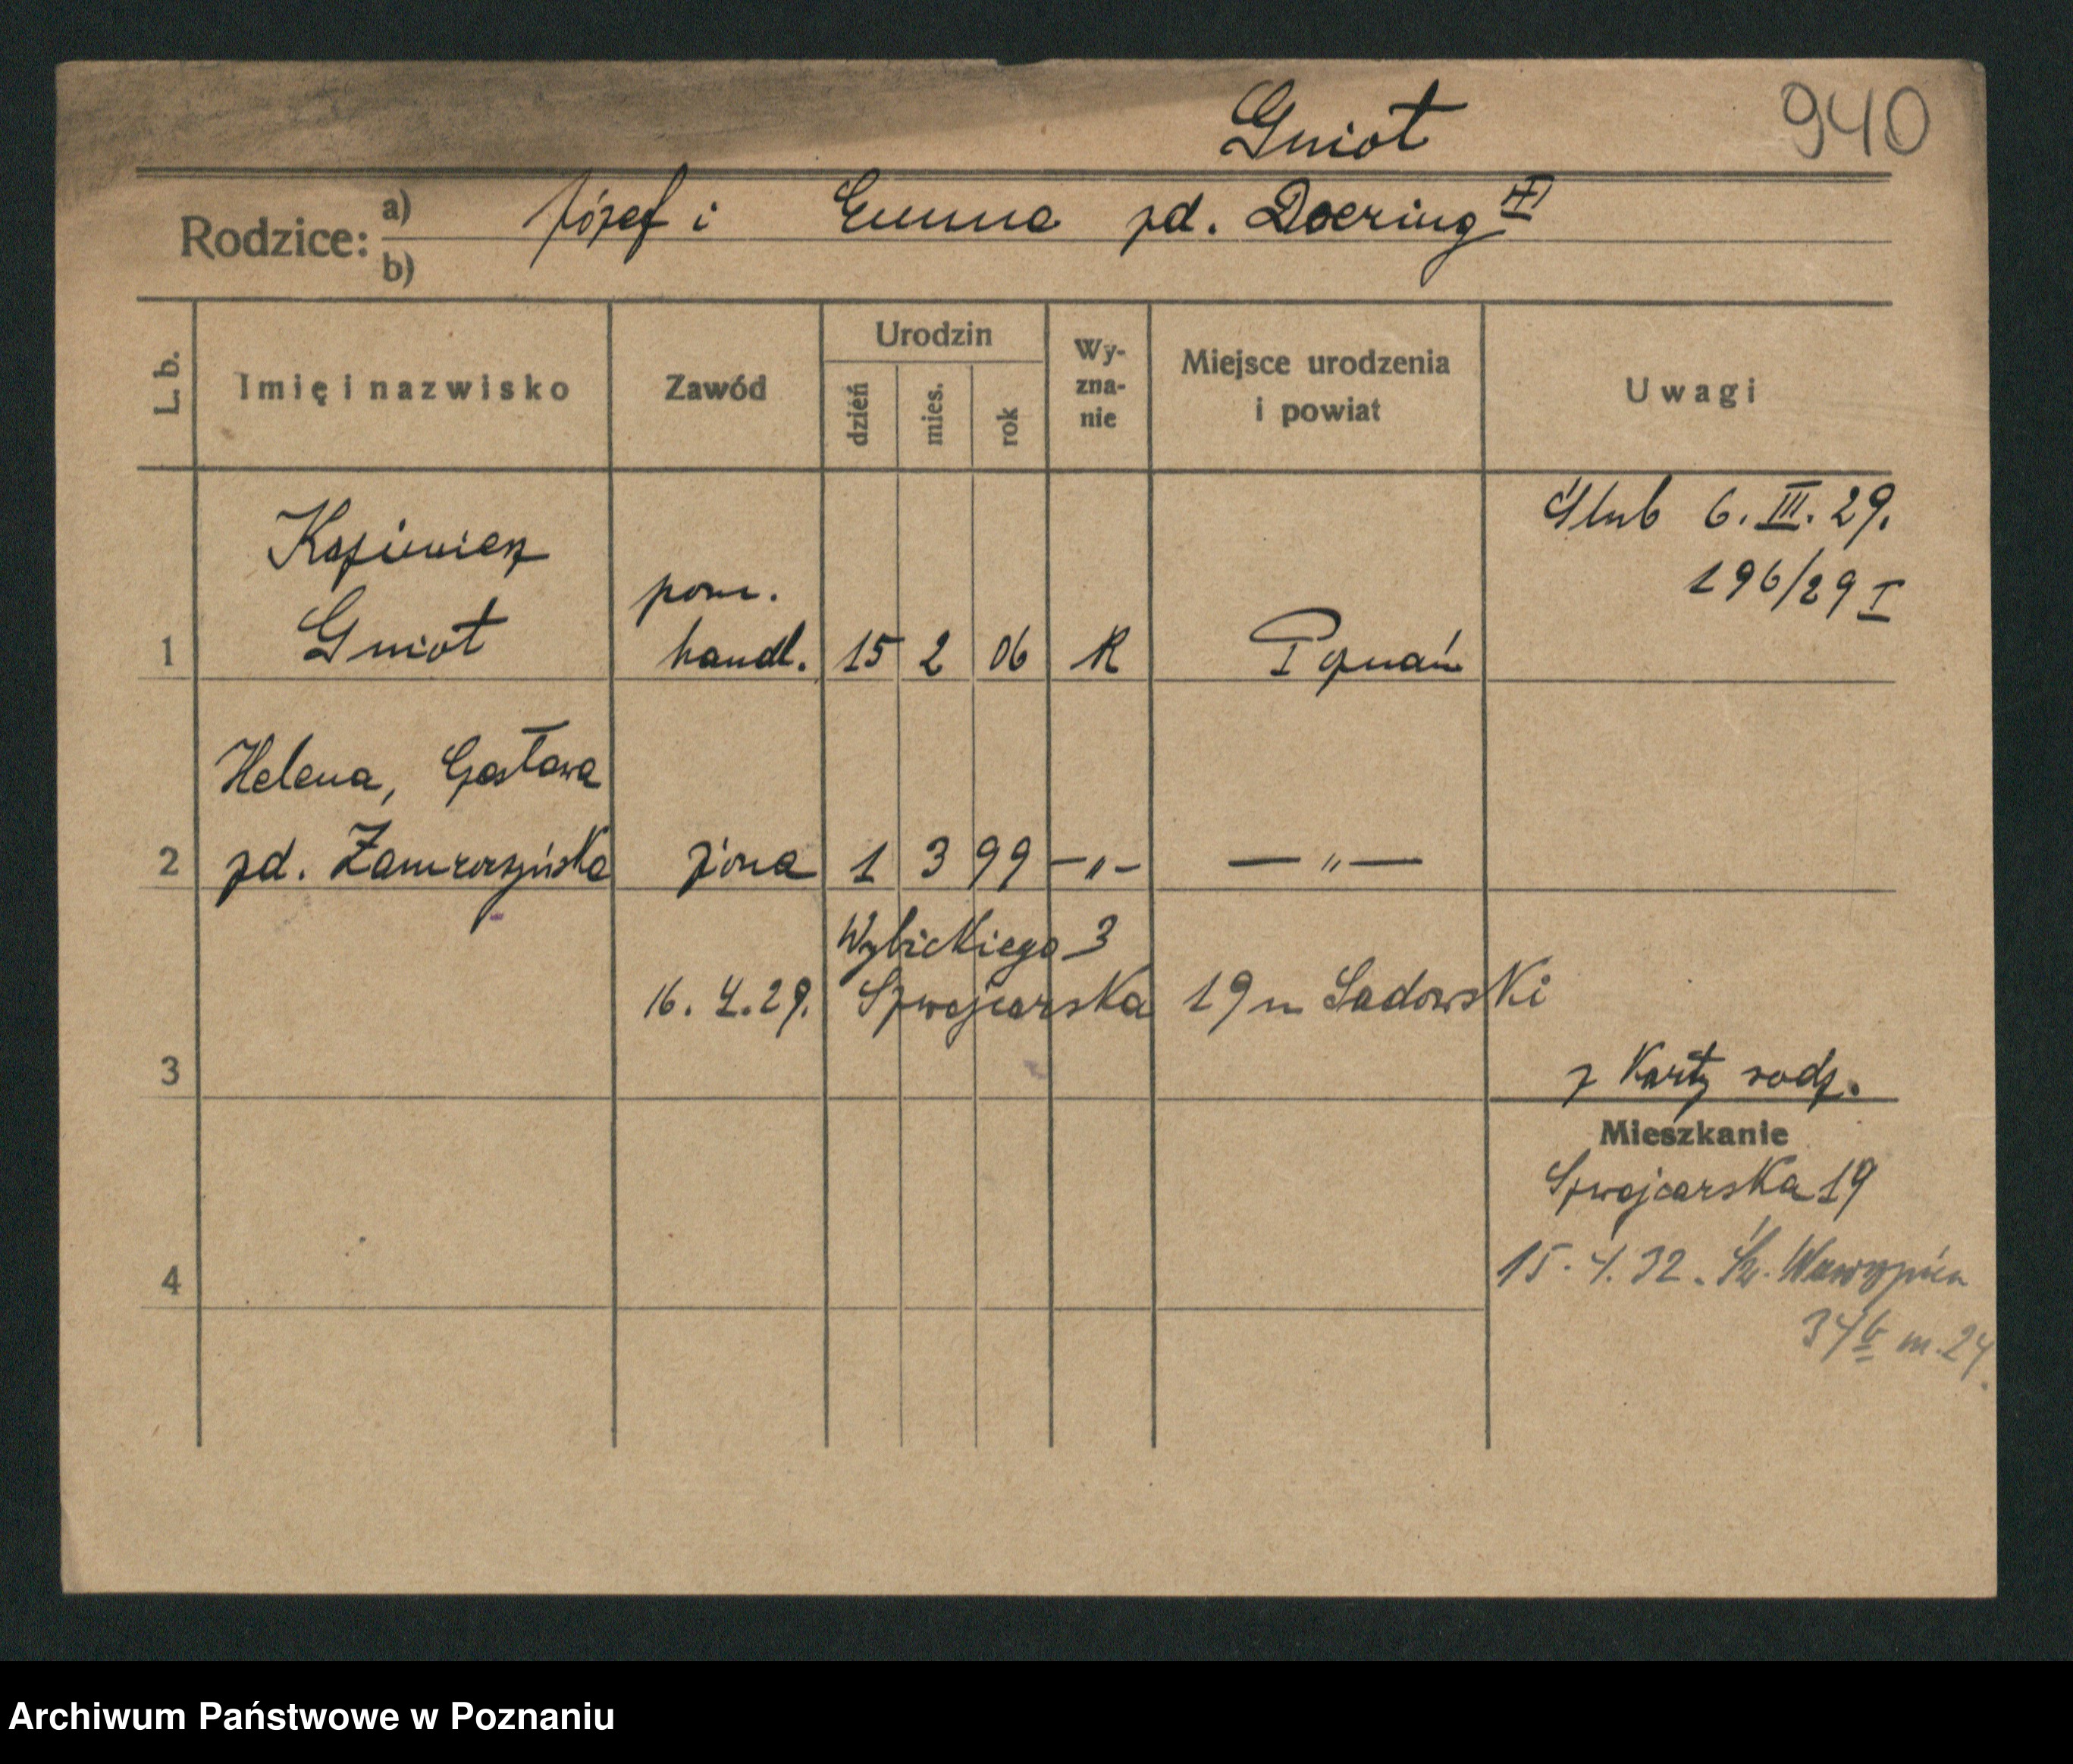 Gniot
940
Rodzice: a) Józef i Emma zd. Doering II
b)
L. b.
Imię i nazwisko
Zawód
Urodzin
dzień
mies.
rok
Wy-
zna-
nie
Miejsce urodzenia
i powiat
Uwagi
Ślub 6. III. 29.
196/29 I
Kazimierz
pom.
1 Gniot handl. 15 2 06 R Poznań
Helena, Gosława
2 zd. żona 1 3 99 –„– —„—
Wybickiego 3
16. 4. 29. Szwajcarska 19 u Sadowski
3
z Karty rodz.
Mieszkanie
Szwajcarska 19
15. 4. 32. Św. Wawrzyńca
4
m. 24.
Archiwum Państwowe w Poznaniu